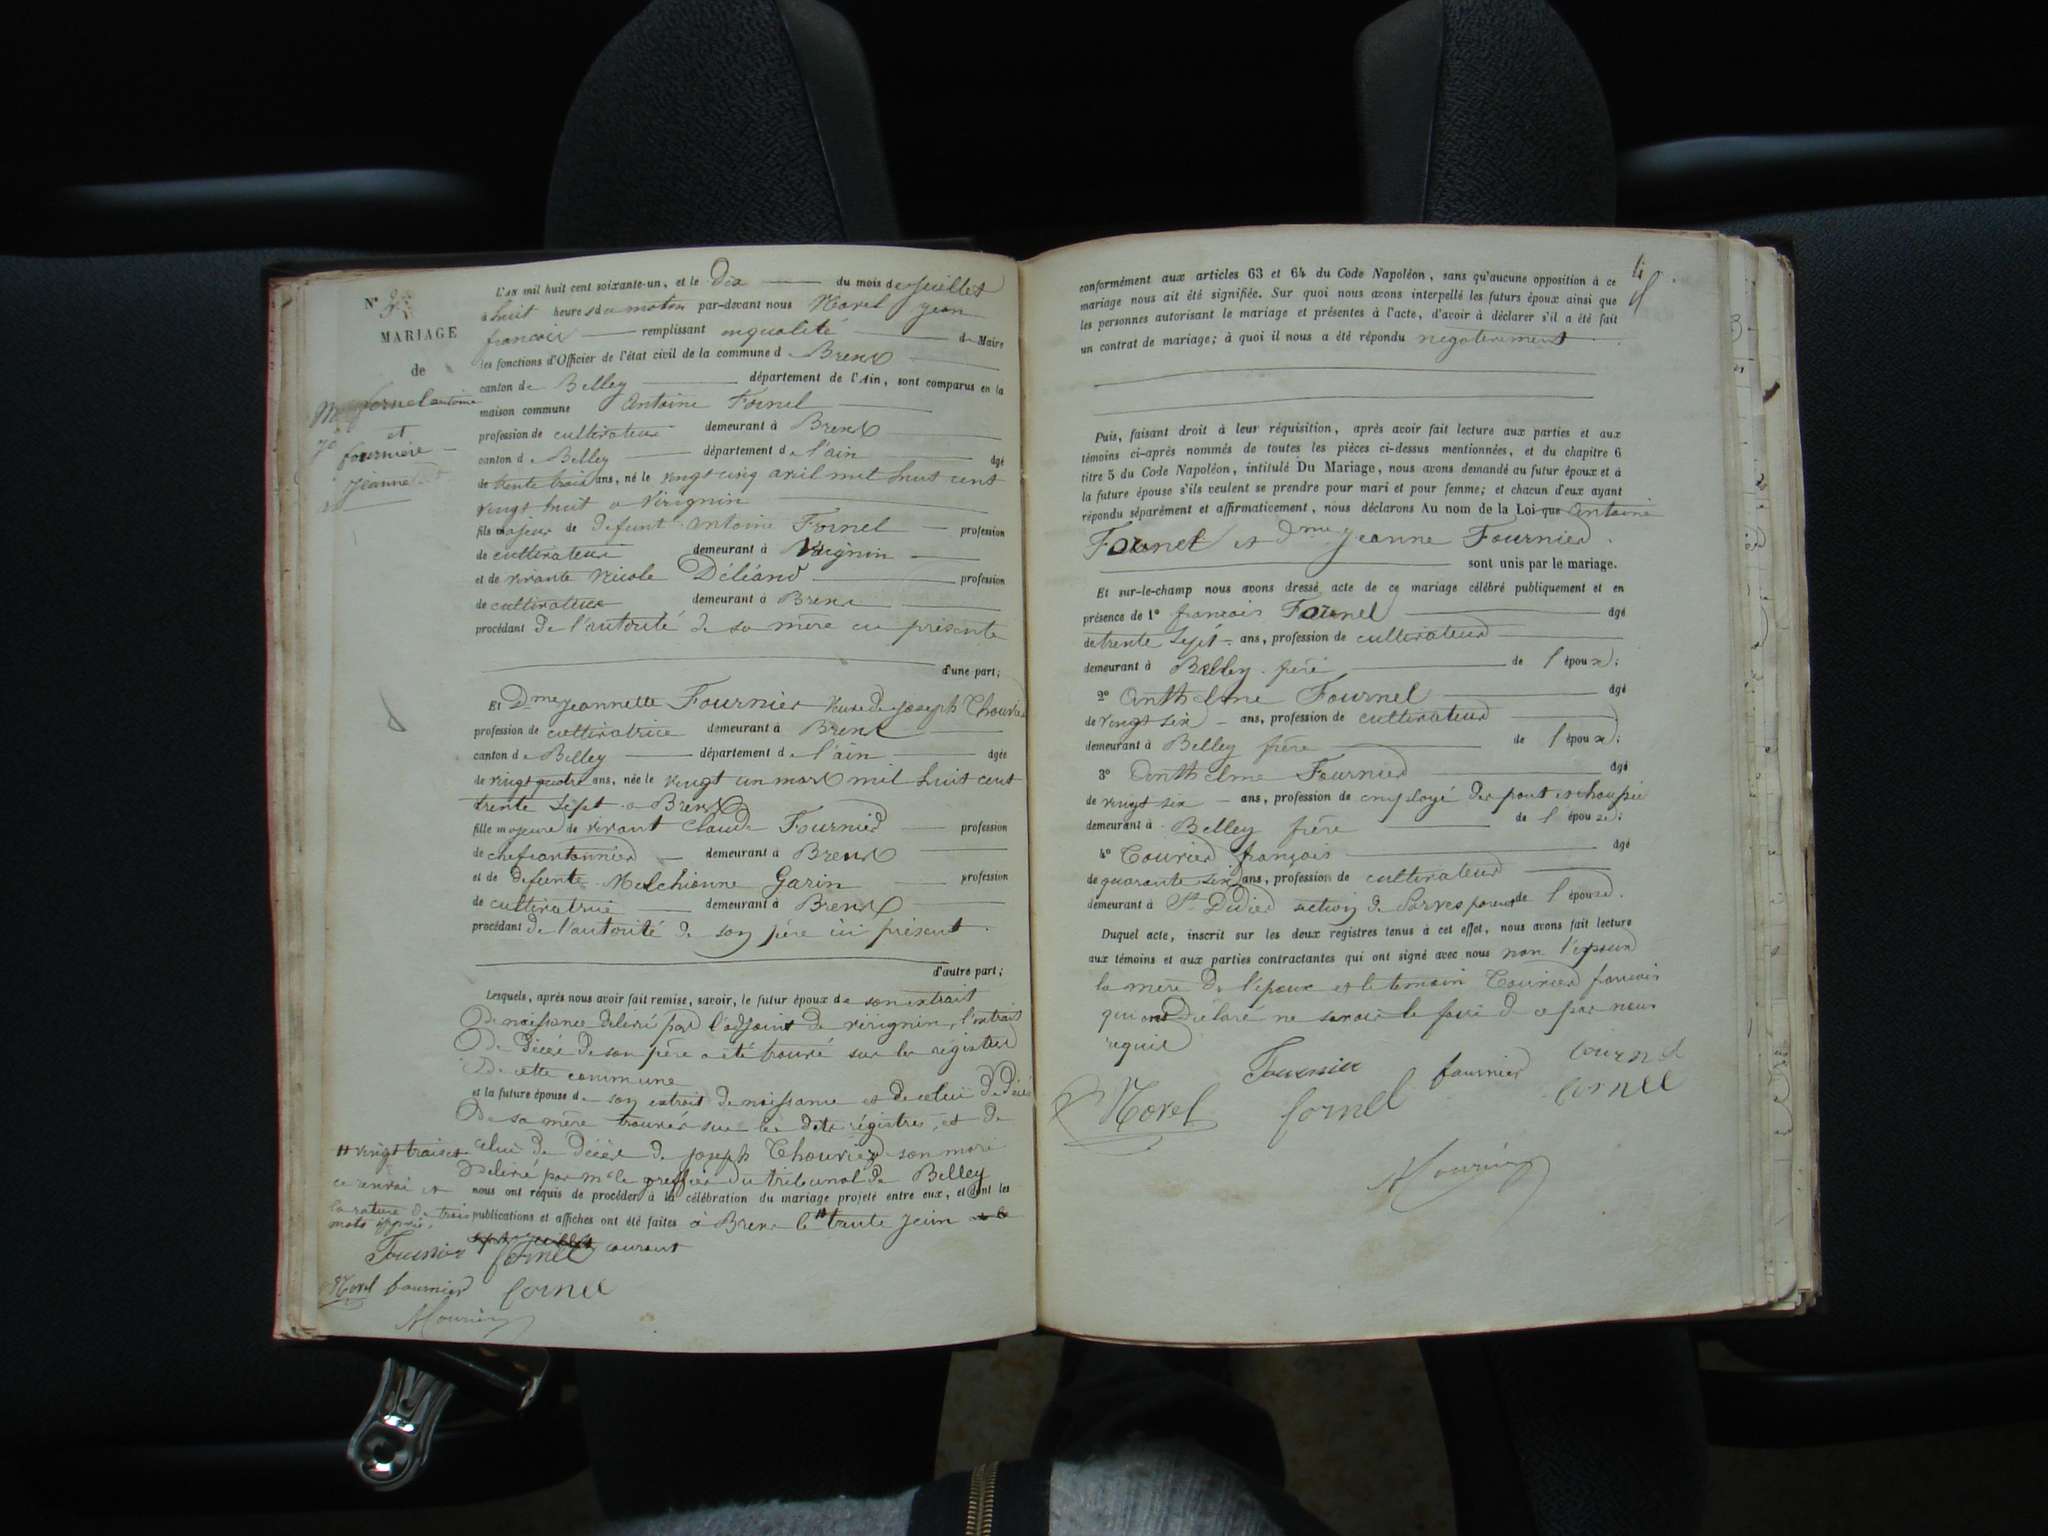 N° 3
MARIAGE
de
fornel antoine
et
fournier
jeanne
L'AN mil huit cent soixante-un, et le Dix du mois de juillet
à huit heures du matin par-devant nous Morel jean
francois remplissant en qualité de Maire
les fonctions d'Officier de l'état civil de la commune d Brens
canton de Belley département de l'Ain, sont comparus en la
maison commune Antoine Fornel
profession de cultivateur demeurant à Brens
canton de Belley département de l'ain âgé
de trente trois ans, né le vingt cinq avril mil huit cent
vingt huit a virignin
fils majeur de defunt Antoine Fornel profession
de cultivateur demeurant à Virignin
et de vivante Nicole Déléand profession
de cultivateur demeurant à Brens
procédant de l'autorité de sa mère ici présente
d'une part;
Et Dme Jeannette Fournier veuve de joseph Chouvier
profession de cultivatrice demeurant à Brens
canton de Belley département de l'ain âgée
de vingt quatre ans, née le vingt un mars mil huit cent
trente sept a Brens
fille majeure de vivant Claude Fournier profession
de chef cantonnier demeurant à Brens
et de defunte Melchionne Garin profession
de cultivatrice demeurant à Brens
procédant de l'autorité de son père ici présent
d'autre part;
Lesquels, après nous avoir fait remise, savoir, le futur époux de son extrait
De naissance delivré par l'adjoint de virignin, l'extrait
De décès de son père a été trouvé sur les régistres
De cette commune
et la future épouse de son extrait de naissance et de celui De décès
De sa mère trouvés sur les dits régistres, et de
celui de décès de joseph Chouvier son mari
Delivré par mr le greffier du tribunal de Belley
nous ont requis de procéder à la célébration du mariage projeté entre eux, et dont les
publications et affiches ont été faites à Brens le # trente juin
courant
# vingt trois et
ce renvoi et
la rature de trois
mots approuvé
Fournier fornel
Morel fournier fornel
conformément aux articles 63 et 64 du Code Napoléon, sans qu'aucune opposition à ce
mariage nous ait été signifiée. Sur quoi nous avons interpellé les futurs époux ainsi que
les personnes autorisant le mariage et présentes à l'acte, d'avoir à déclarer s'il a été fait
un contrat de mariage; à quoi il nous a été répondu negativement
Puis, faisant droit à leur réquisition, après avoir fait lecture aux parties et aux
témoins ci-après nommés de toutes les pièces ci-dessus mentionnées, et du chapitre 6
titre 5 du Code Napoléon, intitulé Du Mariage, nous avons demandé au futur époux et à
la future épouse s'ils veulent se prendre pour mari et pour femme; et chacun d'eux ayant
répondu séparément et affirmativement, nous déclarons Au nom de la Loi que Antoine
Fornel et Dme Jeanne Fournier
sont unis par le mariage.
Et sur-le-champ nous avons dressé acte de ce mariage célébré publiquement et en
présence de 1° francois Fornel âgé
de trente sept ans, profession de cultivateur
demeurant à Belley frère de l'époux;
2° Anthelme Fournel âgé
de vingt six ans, profession de cultivateur
demeurant à Belley frère de l'époux;
3° Anthelme Fournier âgé
de vingt six ans, profession de employé des pont et chaupié
demeurant à Belley frère de l'épouse;
4° Courier françois âgé
de quarante six ans, profession de cultivateur
demeurant à St Didier section de de l'épouse.
Duquel acte, inscrit sur les deux registres tenus à cet effet, nous avons fait lecture
aux témoins et aux parties contractantes qui ont signé avec nous non l'époux
la mère de l'époux et le temoin Courier francois
qui ont déclaré ne savoir le faire de ce par nous
requis
Fournier fournier fournel
Morel fornel fornel